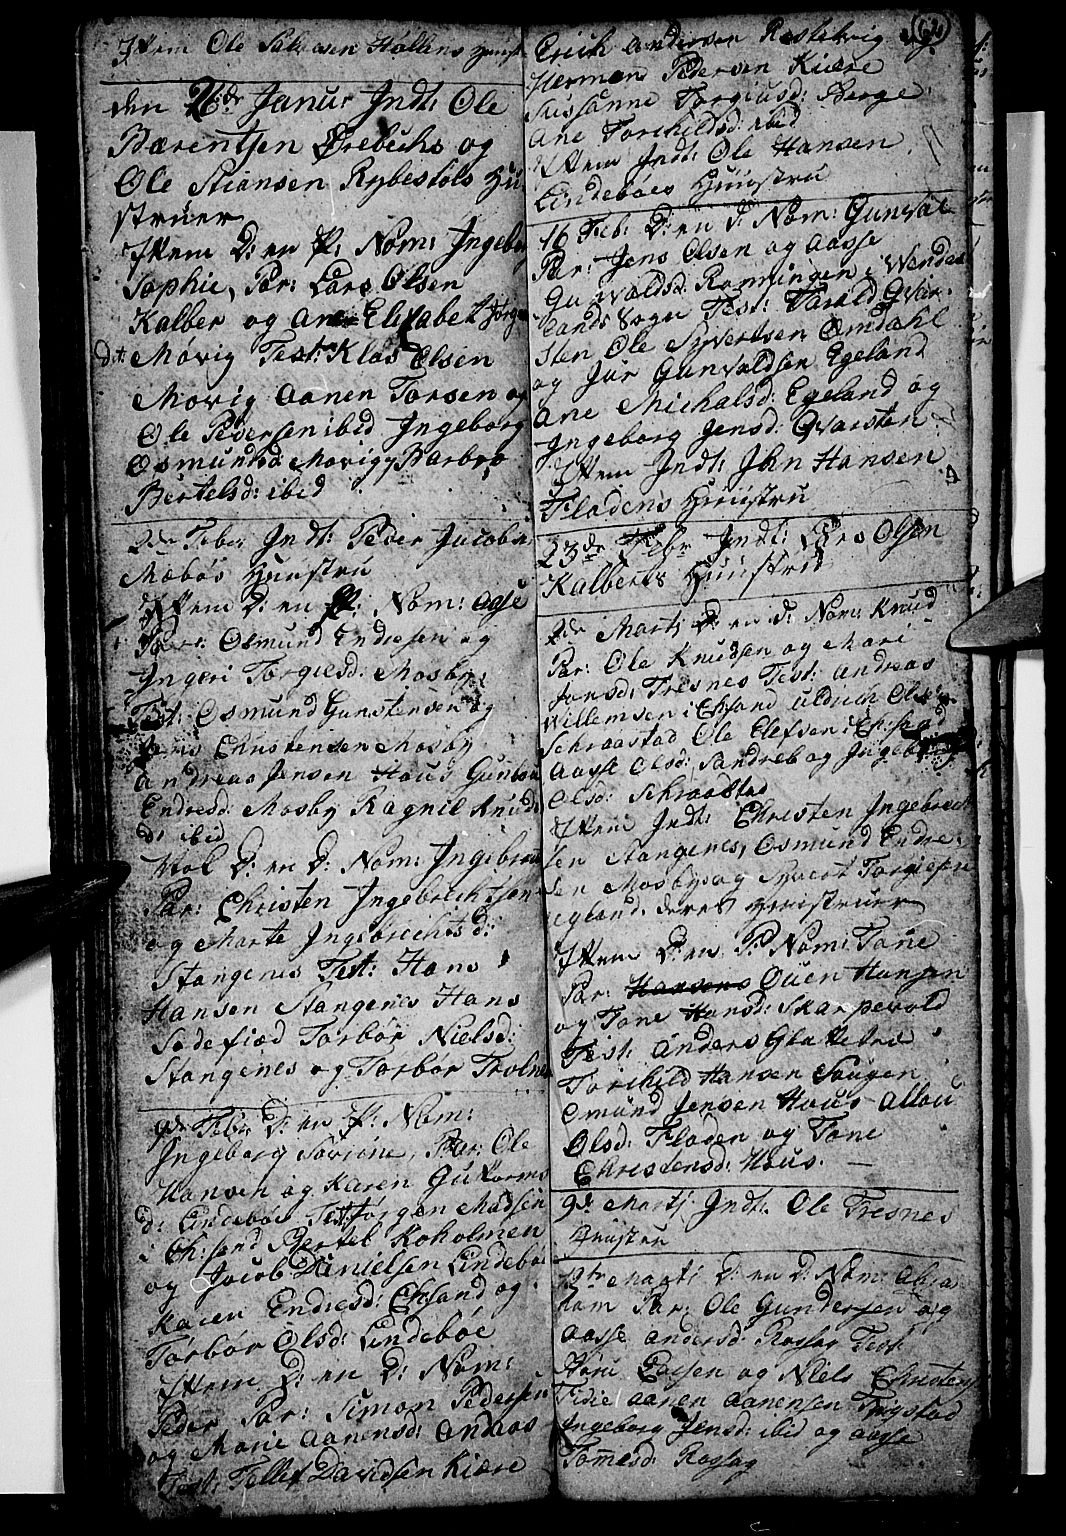 Item Ole Salvesen Hallens Hustr
den 26de Janu: Indt: Ole
Bærentsen Ørebechs og
Ole Stiansen Rybestøls Hu
struer
Item D: en P: Nom: Ingeb
Sophie, Par: Lars Olsen
Kalber og Ane Elisabet Jørgen
dt: Møvig Test: Klas Olsen
Movig Aanen Torsen og
Ole Pedersen ibid Ingeborg
Osmundsd: Movig Barbro
Bertelsd: ibid
2den Febr Indt: Peder Jacobs
Mæbøs Huustru
Item D: en P: Nom: Aase
Par: Osmund Endresen og
Ingeri Torgiesd: Mosby
Test: Osmund Gunstensen og
Jens Christensen Mosby
Andreas Jensen Haus Gunbor
Endresd: Mosby Ragnil Knud
d: ibid
Item D: en D: Nom: Ingebret
Par: Christen Ingebrichtsen
og Marte Ingebrichtsd:
Stangenes Test: Hans
Hansen Stangenes Hans
Sødefiæd Torbør Nielsd:
Stangenes og Torbør Trolnes
9de Febr D: en P: Nom:
Ingeborg Soviöne, Par: Ole
Hansen og Karen Guttorms
d: Lindebøe Test: Jørgen Madsen
i Chsand Bertel Koholmen
og Jacob Danielsen Lindebøe
Karen Endresd: Chsand og
Torbør Olsd: Lindebøe
Item D: en D: Nom:
Peder Par: Simon Pedersen
og Marie Aanensd: Andaas
Test: Tellef Davidsen Kiære
Erich Andersen Rostelvig og
Herman Pedersen Kuære
Sussanne Torgiusd: Berge
Ane Torchildsd: ibid
Item Indt: Ole Hansen
Lindebøes Huustru
16 Feb: D: en D: Nom: Gunval
Par: Jens Olsen og Aasse
Gunvaldsd: Rømmingen i Vendes
lands Sogn Test: Tarald Qvar
sten Ole Syvertsen Omdahl
og Jur Gunvaldsen Egeland
Ane Michalsd: Egeland og
Ingeborg Jensd: Qvarsten
Item Indt: John Hansen
Flodens Huustru
23de Febr Indt: Lars Olsen
Kalbers Huustru
2de Marti D: en D: Nom: Knud
Par: Ole Knudsen og Mari
Jonsd: Tresnes Test: Andreas
Willemsen i Chsand Uldrich Ols
Schraastad Ole Elefsen i Chsand
Aasse Olsd: Sandreb og Ingeb
Olsd: Schraastad
Item Indt: Christen Ingebrect
sen Stangenes, Osmund Endre
sen Mosbys og Syvert Torgiesen
Egland: deres Huustruer
Item D: en P: Nom: Tone
Par: Hansens Ouen Hansen
og Tone Hansd: Skarpevold
Test: Anders Glattetre
Torchild Hansen Saugen
Omund Jensen Haus Allou
Olsd: Floden og Tone
Christensd: Haus.
9de Martj Indt: Ole Tresnes
Huustru
Marti D: en D: Nom: Abra
ham Par: Ole Gundersen og
Aasse Andersd: Rossag Test:
og Niels Christens
Aanen Aanensen Trystad
Ingeborg Jensd: ibid og Aasse
Tommesd: Rossag